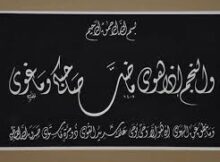 بسم الله الرحمن الرحيم
والنجم إذا هوى ما ضل صاحبكم وما غوى
وما ينطق عن الهوى إن هو إلا وحي يوحى علمه شديد القوى ذو مرة فاستوى